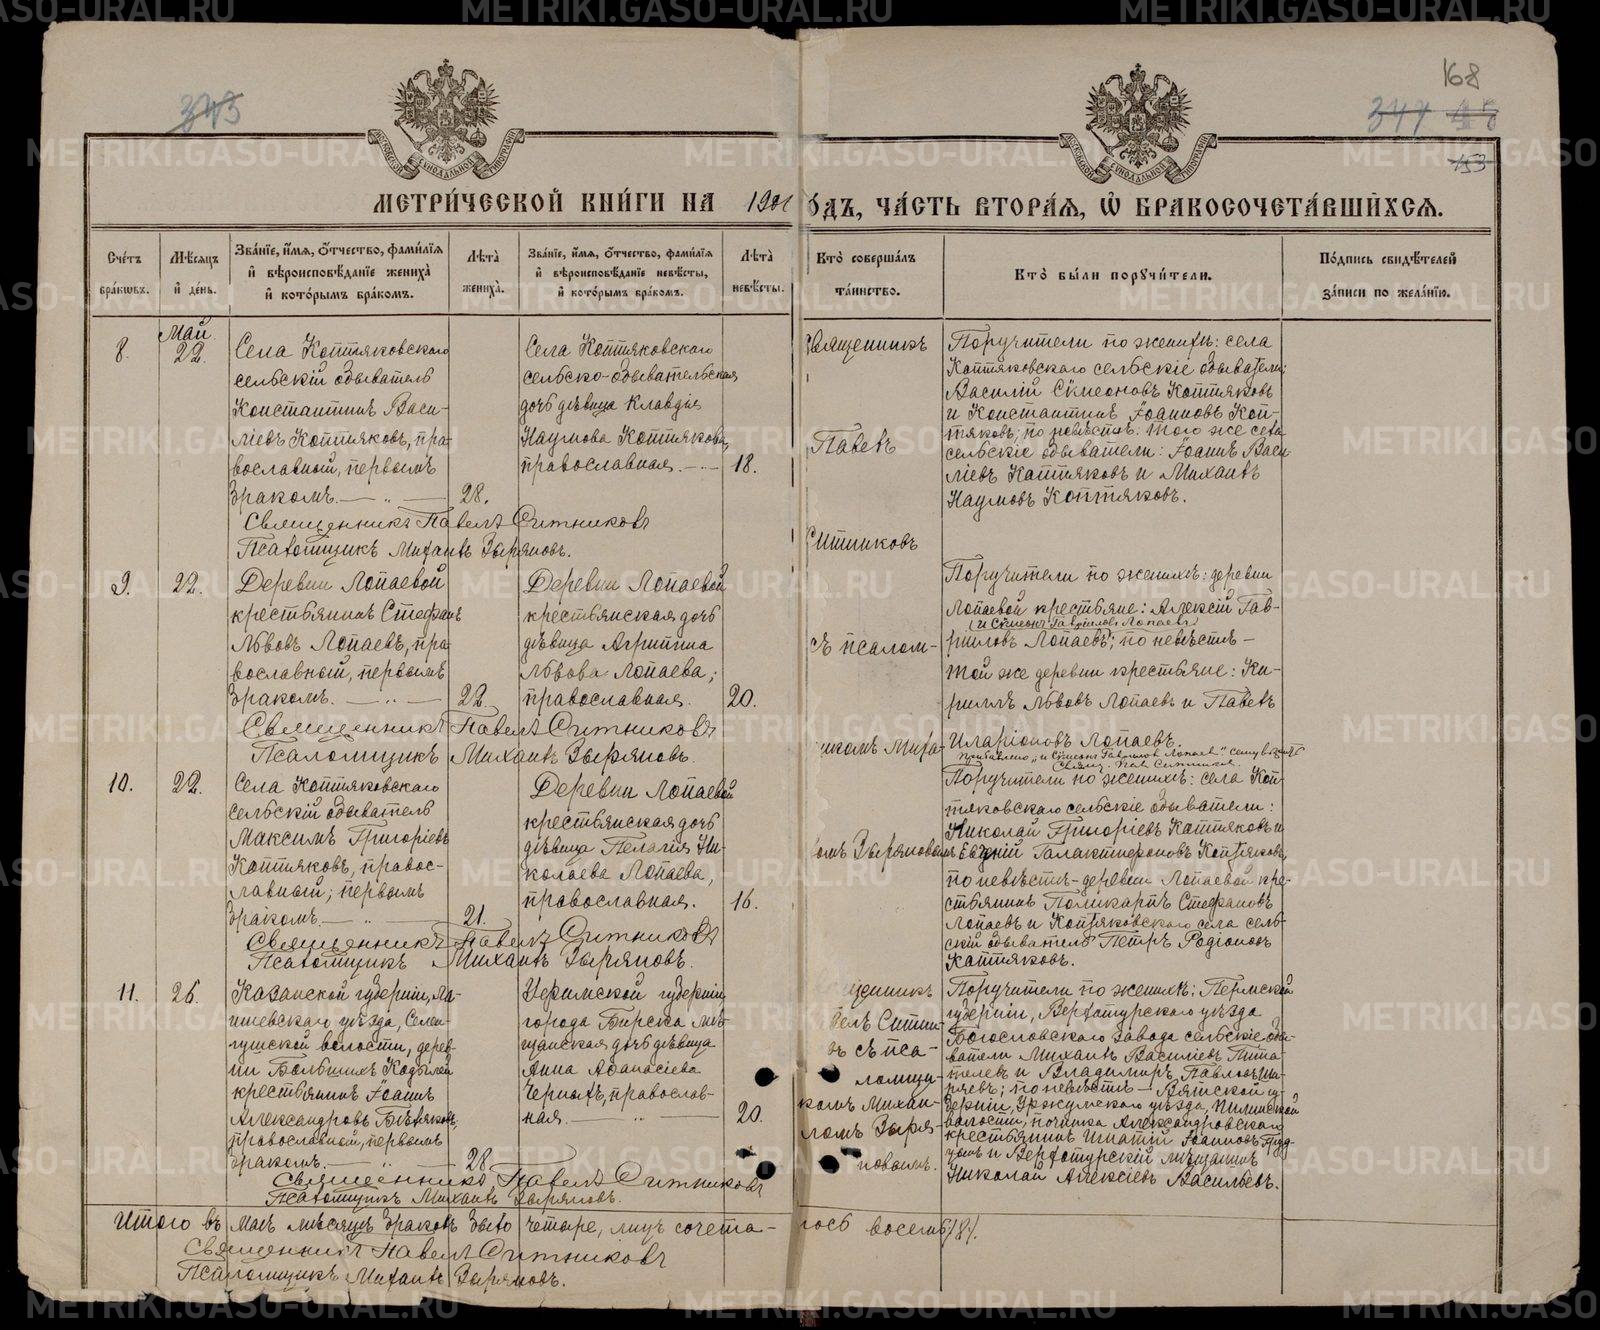 168
343
344
153
МЕТРИ́ЧЕСКОЙ КНИ́ГИ НА 1901 ГОДЪ, ЧА́СТЬ ВТОРА́Я, Ѽ БРАКОСОЧЕТА́ВШИХСЯ.
Сче́тъ бра́ковъ.
Мѣ́сяцъ и́ де́нь.
Зва́нїе, и́мя, ѻ́тчество, фами́лїя и҆ вѣроисповѣ́данїе жениха̀ и҆ кото́рымъ бра́комъ.
Лѣта̀ жениха̀.
Зва́нїе, и́мя, ѻ́тчество, фами́лїя и҆ вѣроисповѣ́данїе невѣ́сты, и҆ кото́рымъ бра́комъ.
Лѣта̀ невѣ́сты.
Кто̀ соверша́лъ та́инство.
Кто̀ бы́ли порꙋчи́тели.
По́дпись свидѣ́телей за́писи по жела́нїю.
Май
8.
22.
Села Коптяковскаго
сельскій обыватель
Константинъ Васи-
ліевъ Коптяковъ, пра-
вославный, первымъ
бракомъ.
28.
Села Коптяковскаго
сельско-обывательская
дочь дѣвица Клавдія
Наумова Коптякова,
православная.
18.
Поручители по женихѣ: села
Коптяковскаго сельскіе обыватели:
Василій Симеоновъ Коптяковъ
и Константинъ Іоанновъ Коп-
тяковъ; по невѣстѣ: того же села
сельскіе обыватели: Іоаннъ Васи
ліевъ Коптяковъ и Михаилъ
Наумовъ Коптяковъ.
Священникъ Павелъ Ситниковъ
Псаломщикъ Михаилъ Зыряновъ.
9.
22.
Деревни Лопаевой
крестьянинъ Стефанъ
Львовъ Лопаевъ, пра
вославный, первымъ
бракомъ.
22.
Деревни Лопаевой
крестьянская дочь
дѣвица Агриппина
Львова Лопаева;
православная.
20.
Поручители по женихѣ: деревни
Лопаевой крестьяне: Алексій Гав-
(и Симеонъ Гавриловъ Лопаевъ)
риловъ Лопаевъ; по невѣстѣ –
той же деревни крестьяне: Ки-
риллъ Львовъ Лопаевъ и Павелъ
Иларіоновъ Лопаевъ.
Священникъ Павелъ Ситниковъ
Псаломщикъ Михаилъ Зыряновъ.
10.
22.
Села Коптяковскаго
сельскій обыватель
Максимъ Григоріевъ
Коптяковъ, правос-
лавный; первымъ
бракомъ.
21.
Деревни Лопаевой
крестьянская дочь
дѣвица Пелагія Ни-
колаева Лопаева,
православная.
16.
Поручители по женихѣ: села Коп-
тяковскаго сельскіе обыватели:
Николай Григоріевъ Коптяковъ и
Евгеній Галактіоновъ Коптяковъ,
по невѣстѣ – деревни Лопаевой кре-
стьянинъ Поликарпъ Стефановъ
Лопаевъ и Коптяковскаго села сель-
скій обыватель Петръ Родіоновъ
Коптяковъ.
Священникъ Павелъ Ситниковъ
Псаломщикъ Михаилъ Зыряновъ.
Священникъ
Павелъ
Ситниковъ
съ псалом-
щикомъ Миха-
ломъ Зыряновымъ
11.
26.
Казанской губерніи, Ла-
ишевскаго уѣзда,
волости, дерев-
ни Большихъ
крестьянинъ Іоаннъ
Александровъ Бѣляковъ,
православный, первымъ
бракомъ.
28.
Уфимской губерніи
города Бирска мѣ-
щанская дочь дѣвица
Анна Аѳанасіева
православ-
ная.
20.
щенникъ
велъ Ситни-
въ съ пса-
ломщи-
комъ Михаи-
ломъ Зыря-
новымъ.
Поручители по женихѣ: Пермской
губерніи, Верхотурскаго уѣзда
Богословскаго завода сельскіе обы-
ватели Михаилъ Василіевъ
и Владимиръ Павловъ
по невѣстѣ – Вятской гу-
берніи, Уржумскаго уѣзда,
волости, починка Александровскаго
крестьянинъ Игнатій Іоанновъ
и Верхотурскій мѣщанинъ
Николай Алексіевъ Васильевъ.
Священникъ Павелъ Ситниковъ
Псаломщикъ Михаилъ Зыряновъ.
Итого въ маѣ мѣсяцѣ браковъ было четыре, лицъ сочета-лось восемь /8/.
Священникъ Павелъ Ситниковъ
Псаломщикъ Михаилъ Зыряновъ.
METRIKI.GASO-URAL.RU